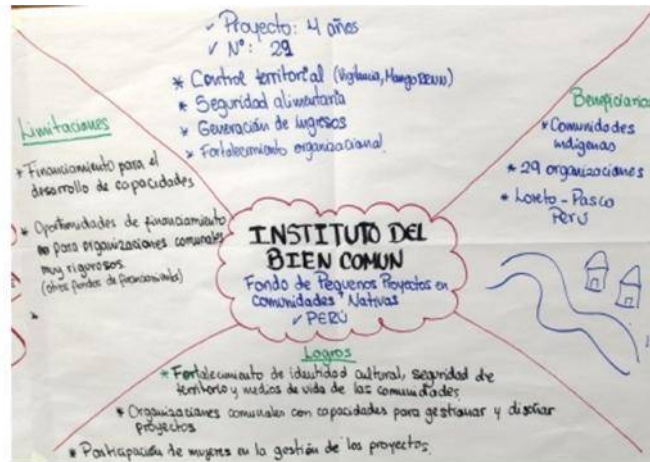 ✓ Proyecto: 4 años
✓ N°: 29
* Control territorial (Vigilancia, Manejo RRNN)
* Seguridad alimentaria
* Generación de Ingresos
* Fortalecimiento organizacional
Limitaciones
* Financiamiento para el
desarrollo de capacidades
* Oportunidades de financiamiento
para organizaciones comunales
muy rigurosos.
(otros fondos de financiamiento)
*
INSTITUTO DEL
BIEN COMUN
Fondo de Pequeños Proyectos en
Comunidades Nativas
✓ PERÚ
Beneficiarios
* Comunidades
indígenas
* 29 organizaciones
* Loreto - Pasco
Perú
Logros
* Fortalecimiento de identidad cultural, seguridad de
territorio y medios de vida de las comunidades.
* Organizaciones comunales con capacidades para gestionar y diseñar
proyectos
* Participación de mujeres en la gestión de los proyectos.